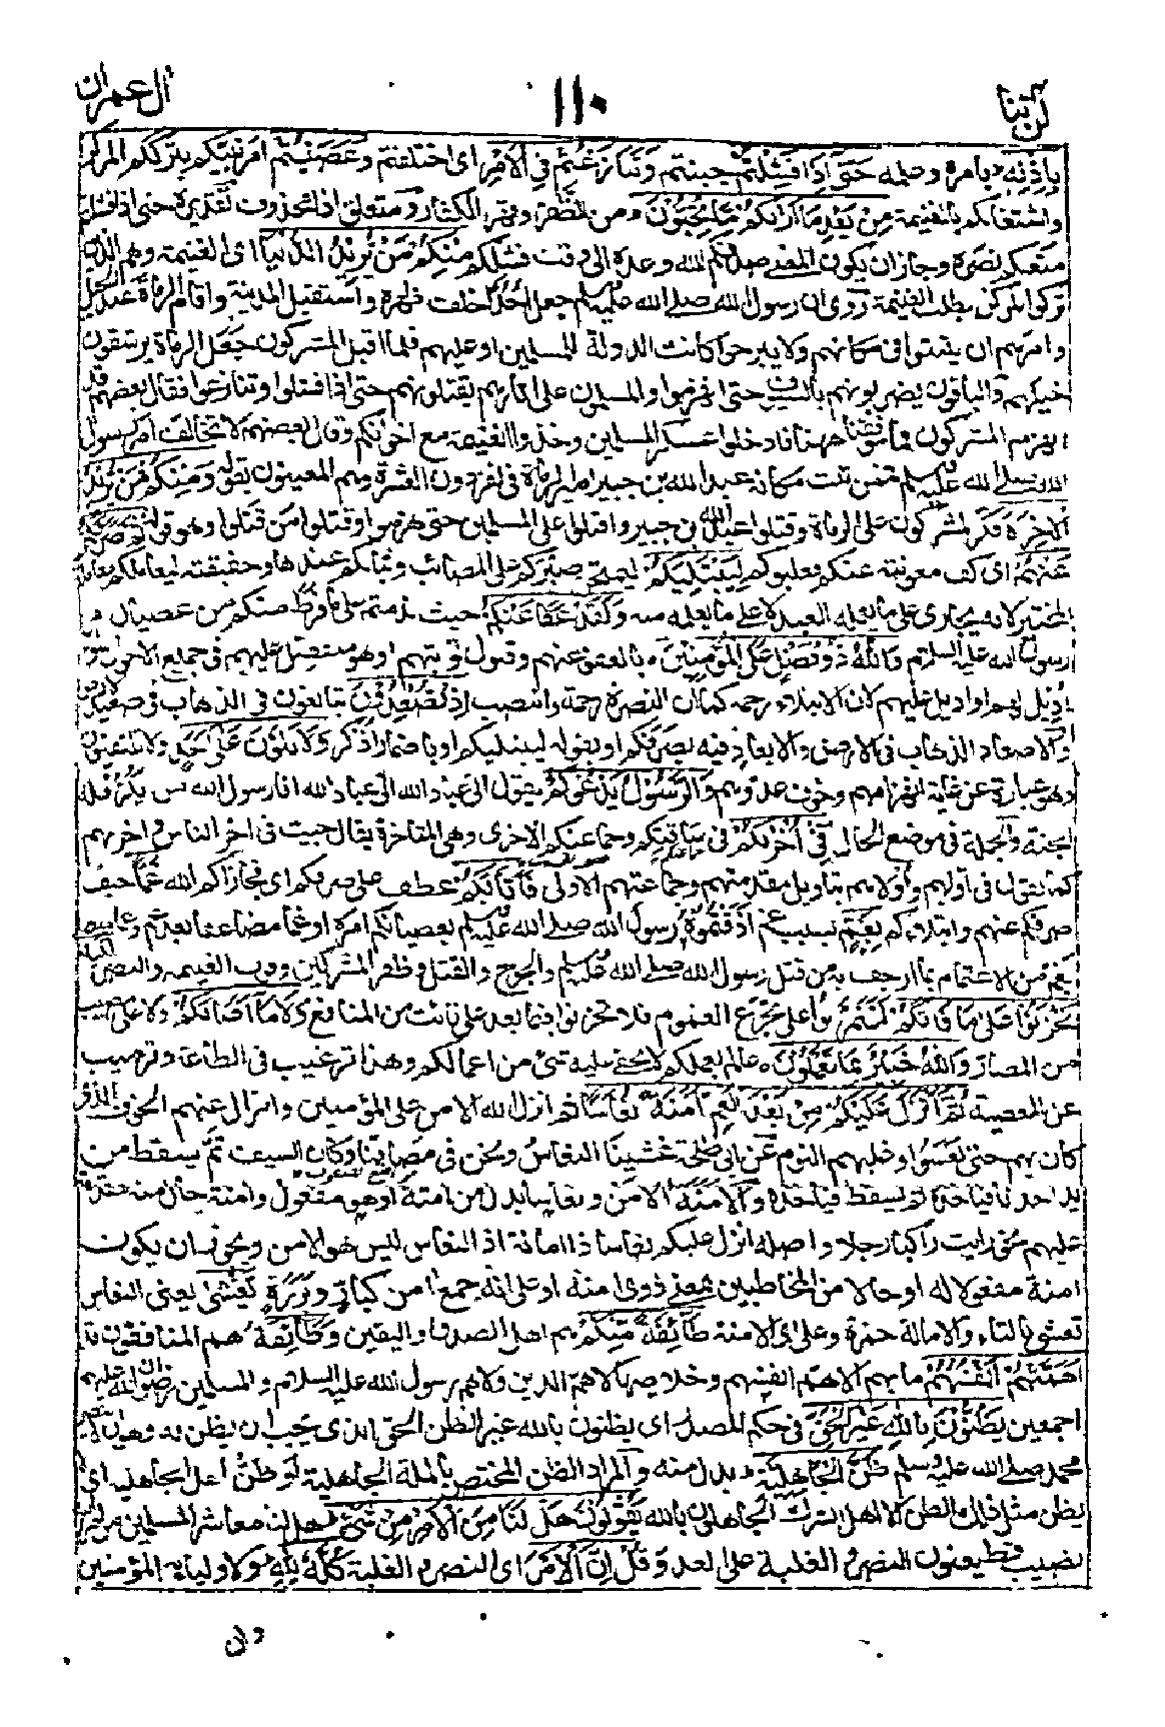 لن تنا
١١٠
ال عمران
بِاِذْنِهٖ بامره وعلمه حَتّٰى اِذَا فَشِلْتُمْ جبنتم وَتَنَازَعْتُمْ فِي الْاَمْرِ اى اختلفتم وَعَصَيْتُمْ امر نبيكم بترككم المركز
واشتغالكم بالغنيمة مِنْ بَعْدِ مَا اَرٰىكُمْ مَا تُحِبُّوْنَ من الظفر وقهر الكفار ومتعلق اذا محذوف تقديره حتى اذا فشلتم
منعكم نصره وجاز ان يكون المعنى صدقكم الله وعده الى وقت فشلكم مِنْكُمْ مَنْ يُّرِيْدُ الدُّنْيَا اى الغنيمة وهم الذين
تركوا المركز بطلب الغنيمة روى ان رسول الله صلى الله عليه وسلم جعل احدا خلف ظهره واستقبل المدينة واقام الرماة عند الجبل
وامرهم ان يثبتوا فى مكانهم ولا يبرحوا كانت الدولة للمسلمين او عليهم فلما اقبل المشركون جعل الرماة يرشقون
خيلهم والباقون يضربونهم بالسيوف حتى انهزموا والمسلمون على اثارهم يقتلونهم حتى اذا فشلوا وتنازعوا فقال بعضهم قد
انهزم المشركون فما موقفنا ههنا فادخلوا عسكر المسلمين وخذوا الغنيمة مع اخوانكم وقال بعضهم لا تخالف امر رسول
الله صلى الله عليه وسلم فممن ثبت مكانه عبد الله بن جبير امير الرماة فى نفر دون العشرة وهم المعنيون بقوله وَمِنْكُمْ مَنْ يُّرِيْدُ
الْاٰخِرَةَ فكر المشركون على الرماة وقتلوا عبد الله بن جبير واقبلوا على المسلمين حتى هزموا وقتلوا من قتلوا وهو قوله ثُمَّ صَرَفَكُمْ
عَنْهُمْ اى كف معونته عنكم فغلبوكم لِيَبْتَلِيَكُمْ ليمتحن صبركم على المصائب وثباتكم عندها وحقيقته ليعاملكم معاملة
المختبر لانه يجازى على ما يعمله العبد لا على ما يعلمه منه وَلَقَدْ عَفَا عَنْكُمْ حيث ندمتم على ما فرط منكم من عصيان
رسول الله عليه السلام وَاللهُ ذُوْ فَضْلٍ عَلَى الْمُؤْمِنِيْنَ بالعفو عنهم وقبول توبتهم او هو متفضل عليهم فى جميع الاحوال سواء
اديل لهم او اديل عليهم لان الابتلاء رحمة كما ان النصرة رحمة وانتصب اِذْ تُصْعِدُوْنَ تبالغون فى الذهاب فى صعيد الارض
والاصعاد الذهاب فى الارض والابعاد فيه بصرفكم او بقوله ليبتليكم او باضمار اذكر وَلَا تَلْوٗنَ عَلٰى اَحَدٍ ولا تلتفتون
وهو عبارة عن غاية انهزامهم وخوف عدوهم وَالرَّسُوْلُ يَدْعُوْكُمْ يقول الى عباد الله الى عباد الله انا رسول الله من يكر فله
الجنة والجملة فى موضع الحال فِيْ اُخْرٰىكُمْ فى ساقتكم وجماعتكم الاخرى وهى المتاخرة يقال جئت فى اخر الناس واخرىهم
كما يقول فى اولهم واولاهم بتاويل مقدمتهم وجماعتهم الاولى فَاَثَابَكُمْ عطف على صرفكم اى فجازاكم الله غَمًّا حين
صرفكم عنهم وابتلاكم بِغَمٍّ بسبب غم اذقتموه رسول الله صلى الله عليه وسلم بعصيانكم امره او غما مضاعفا بعد غم وغما متصلا
بغم من الاغتمام بما ارجف به من قتل رسول الله صلى الله عليه وسلم والجرح والقتل وظفر المشركين وفوت الغنيمة والنصر لِكَيْلَا
تَحْزَنُوْا عَلٰى مَا فَاتَكُمْ لتتمرنوا على تجرع الغموم فلا تحزنوا فيما بعد على فائت من المنافع وَلَا مَا اَصَابَكُمْ ولا على مصيب
من المضار وَاللهُ خَبِيْرٌ بِمَا تَعْمَلُوْنَ عالم بعملكم لا يخفى عليه شئ من اعمالكم وهذا ترغيب فى الطاعة وترهيب
عن المعصية ثُمَّ اَنْزَلَ عَلَيْكُمْ مِنْ بَعْدِ الْغَمِّ اَمَنَةً نُعَاسًا ثم انزل الله الامن على المؤمنين وازال عنهم الخوف الذى
كان بهم حتى نعسوا وغلبهم النوم عن ابى طلحة غشينا النعاس ونحن فى مصافنا وكان السيف ثم يسقط من
يد احدنا فياخذه ثم يسقط فياخذه والامنة الامن ونعاسا بدل من امنة او هو مفعول وامنة حال منه مقدمة
عليهم نحو رايت راكبا رجلا واصله انزل عليكم نعاسا ذا امنة اذ النعاس ليس هو الامن ويجوز ان يكون
امنة مفعولا له او حالا من المخاطبين بمعنى ذوى امنة او على انه جمع امن كبار وبررة يَّغْشٰى يعنى النعاس
تغشى بالتاء والامالة حمزة وعلى اى الامنة طَآئِفَةً مِّنْكُمْ هم اهل الصدق واليقين وَطَآئِفَةٌ هم المنافقون قَدْ
اَهَمَّتْهُمْ اَنْفُسُهُمْ ما بهم الا هم انفسهم وخلاصها لا هم الدين ولا هم رسول الله عليه السلام والمسلمين رضوان الله عليهم
اجمعين يَظُنُّوْنَ بِاللهِ غَيْرَ الْحَقِّ فى حكم المصدر اى يظنون بالله غير الظن الحق الذى يجب ان يظن به وهو ان لا ينصر
محمد صلى الله عليه وسلم ظَنَّ الْجَاهِلِيَّةِ بدل منه والمراد الظن المختص بالملة الجاهلية او ظن اهل الجاهلية اى لا
يظن مثل ذلك الظن الا اهل الشرك الجاهلون بالله يَقُوْلُوْنَ هَلْ لَّنَا مِنَ الْاَمْرِ مِنْ شَيْءٍ هل لنا معاشر المسلمين من امر الله
نصيب قط يعنون النصر والغلبة على العدو قُلْ اِنَّ الْاَمْرَ اى النصر والغلبة كُلَّهٗ لِلّٰهِ ولاوليائه المؤمنين